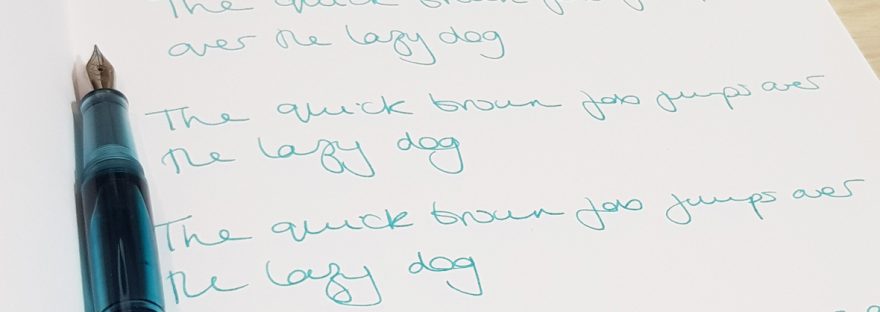 The quick brown
over the lazy dog
The quick brown fox jumps over
the lazy dog
The quick brown fox jumps over
the lazy dog